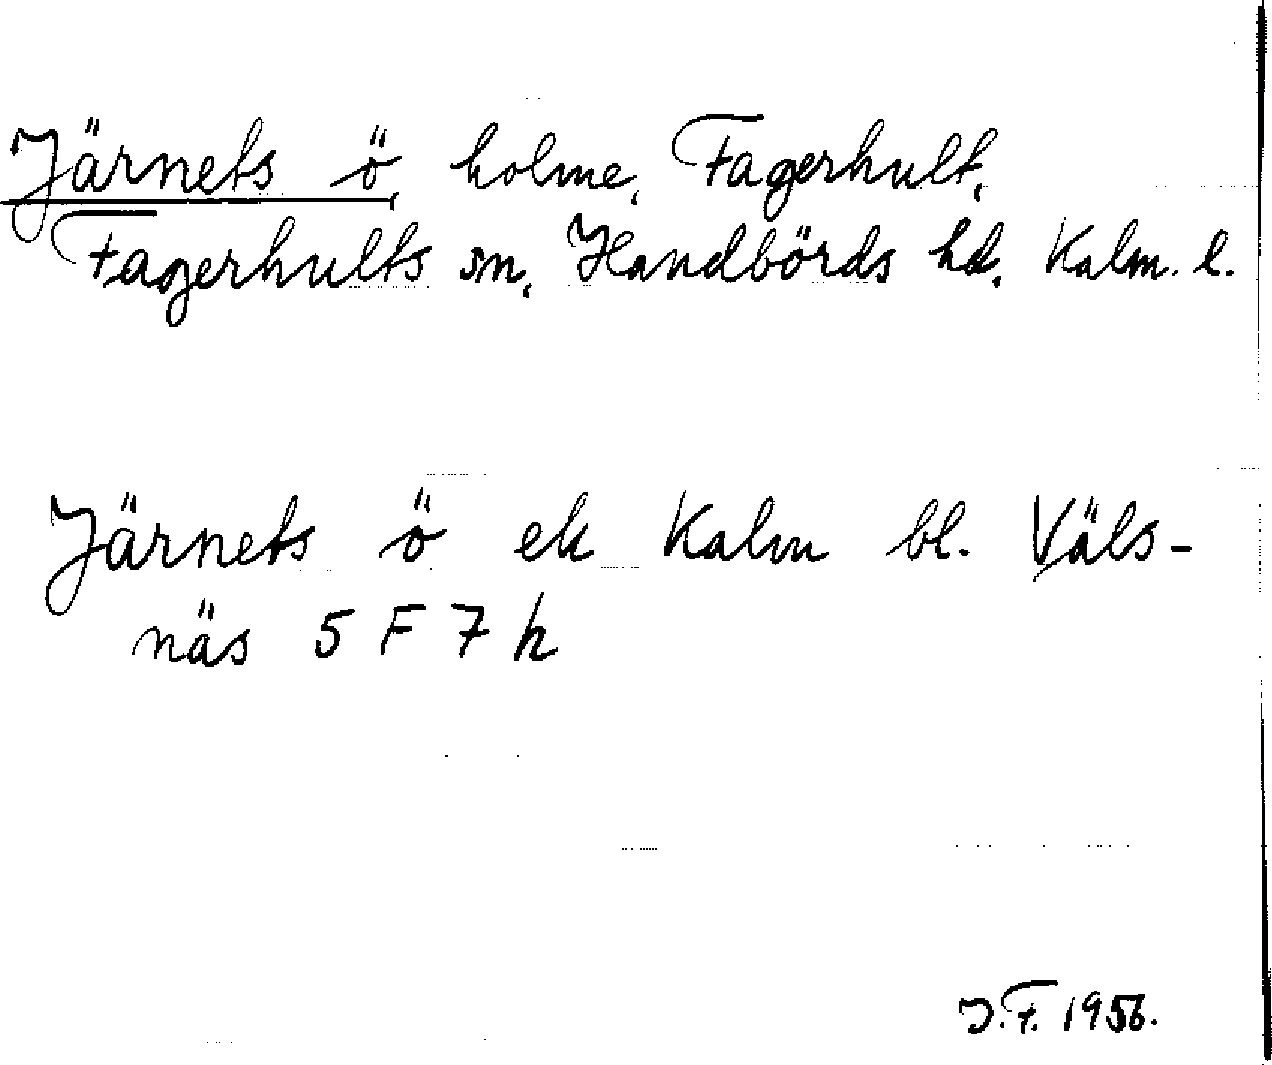 Järnets ö, holme, Fagerhult,
Fagerhults sn, Handbörds hd, Kalm. l.
Järnets ö ek Kalm bl. Väls-
näs 5 F 7 h
J.F. 1956.